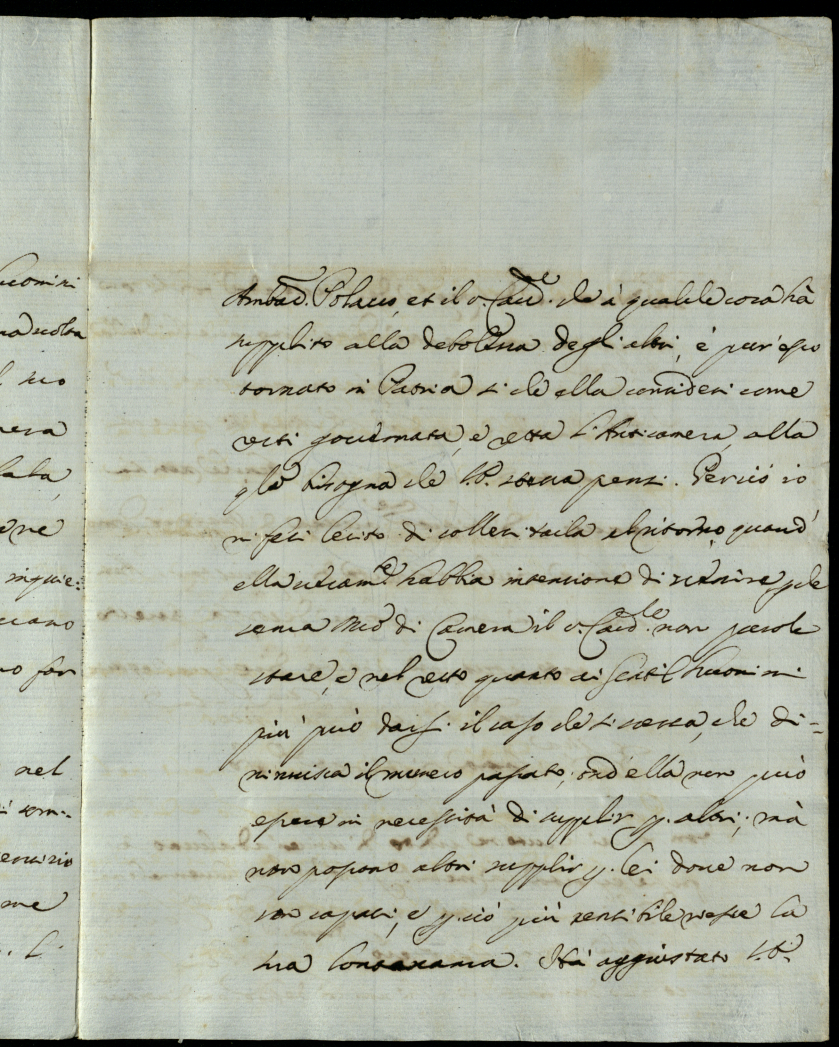 uomini
ma uolta
l suo
nera
lata,
ne
inquie:
ciano
no far
nel
ser-
eruizio
me
Ambad.r Polacco, et il s. Card.le che à qualche cosa hà
supplito alla debolezza degli altri, è pur'esso
tornato in Patria si che ella consideri come
resti gouernata, e retta l'Anticamera, alla
q.le bisogna che V.S. pensi. Perciò io
mi feci lecito di sollecitarla al ritorno, quand'
ella ueram.te habbia intenzione di seruire, p.che
senza M.ro di Camera il s. Card.le non puole
stare, e nel resto quanto ai Gentilhuomini
più può darsi il caso che si cresca, che di=
minuisca il numero passato, ond'ella non può
essere in necessità di supplir p. altri; mà
non possono altri supplir p. lei doue non
son capaci, e p. ciò più sensibile riesce la
sua lontananza. Hà aggiustato V.S.